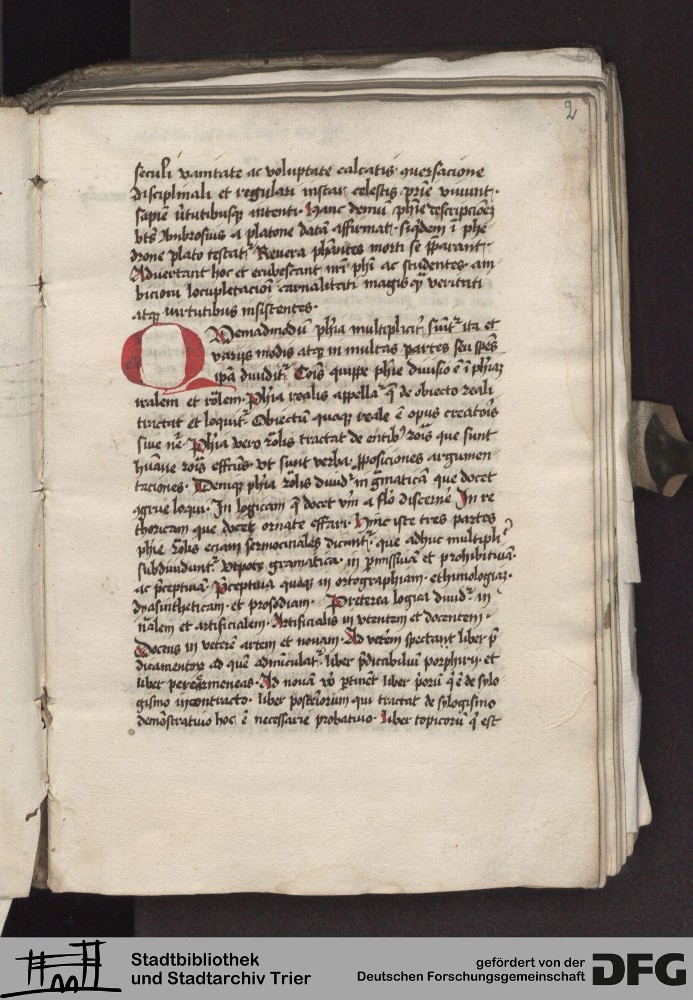 2
seculi vanitate ac voluptate calcatis· ꝯuersacione
disciplinali et regulari instar celestis pr̄ie viuunt·
sapiēn v̄tutibusqꝫ intenti· Hanc demū ph̄ie descripcōeꝫ
bt̄s Ambrosius a platone datā affirmat· siq̄dem ī phe
drone plato testatᷣ Reuera ph̄antes morti se p̄parant·
Aduertant hoc et erubescant nr̄i ph̄i ac studentes· am
bicioni locupletacioni carnalitati magis qꝫ veritati
atqꝫ virtutibus insistentes·
Quemadmodū ph̄ia multiplicit᷑ sūitᷣ ita et
varijs modis atqꝫ in multas partes seu sp̄es
ip̄a diuiditᷣ Cōis quippe ph̄ie diuisio ē ī ph̄iaꝫ
realem et rōlem· Ph̄ia realis appellaᷣ q̄ de obiecto reali
tractat et loquitᷣ Obiectū quoqꝫ reale ē opus creatoris
siue nē· Ph̄ia vero rōlis tractat de entibꝰ rōis que sunt
humāe rōis effcūs· vt sunt verba· ꝓposiciones argumen
taciones· Deniqꝫ ph̄ia rōlis diuidᷣ in gmaticā que docet
ꝯgrue loqui· In logicam q̄ docet vm̄ a flō discerne͛ In re
thoricam que docet ornate effari· Hinc iste tres partes
phie rōlis eciam sermocinales dicunt᷑· que adhuc multiplr̄
subdiuidunt᷑ Vtpote gramatica· in p̄missiuā et prohibitiuā·
ac p̄ceptiuā· P̄ceptiua quoqꝫ in ortographiam· ethimologiaꝫ·
dyasintheticam· et prosodiam· Preterea logica diuidᷣ in
nālem et artificialem· Artificialis in vtentem et docentem·
Docens in veterē artem et nouam· Ad vetēm spectant liber p̄
dicamentoꝝ ad quē adminiculatᷣ liber p̄dicabiliū porphirij· et
liber periermeneas· Ad nouā v̊ ꝑtinēt liber p̄orū q̄ ē de sylo
gismo incontracto· liber posteriorum qui tractat de sylogismo
demōstratiuo hoc ē necessarie probatiuo· Liber topicorū q̄ est
Stadtbibliothek
und Stadtarchiv Trier
gefördert von der
Deutschen Forschungsgemeinschaft
DFG